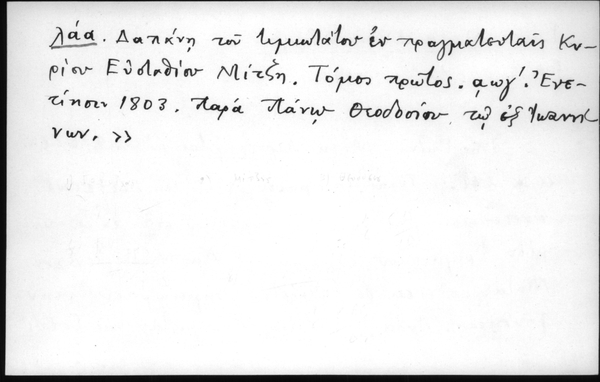 λάα. Δαπάνῃ τοῦ τιμιωτάτου ἐν πραγματευταῖς Κυ-
ρίου Εὐσταθίου Μίτζη. Τόμος πρῶτος. αωγʹ. Ἐνε-
τίησιν 1803. Παρὰ Πάνῳ Θεοδοσίου τῷ ἐξ Ἰωαννί
νων. »